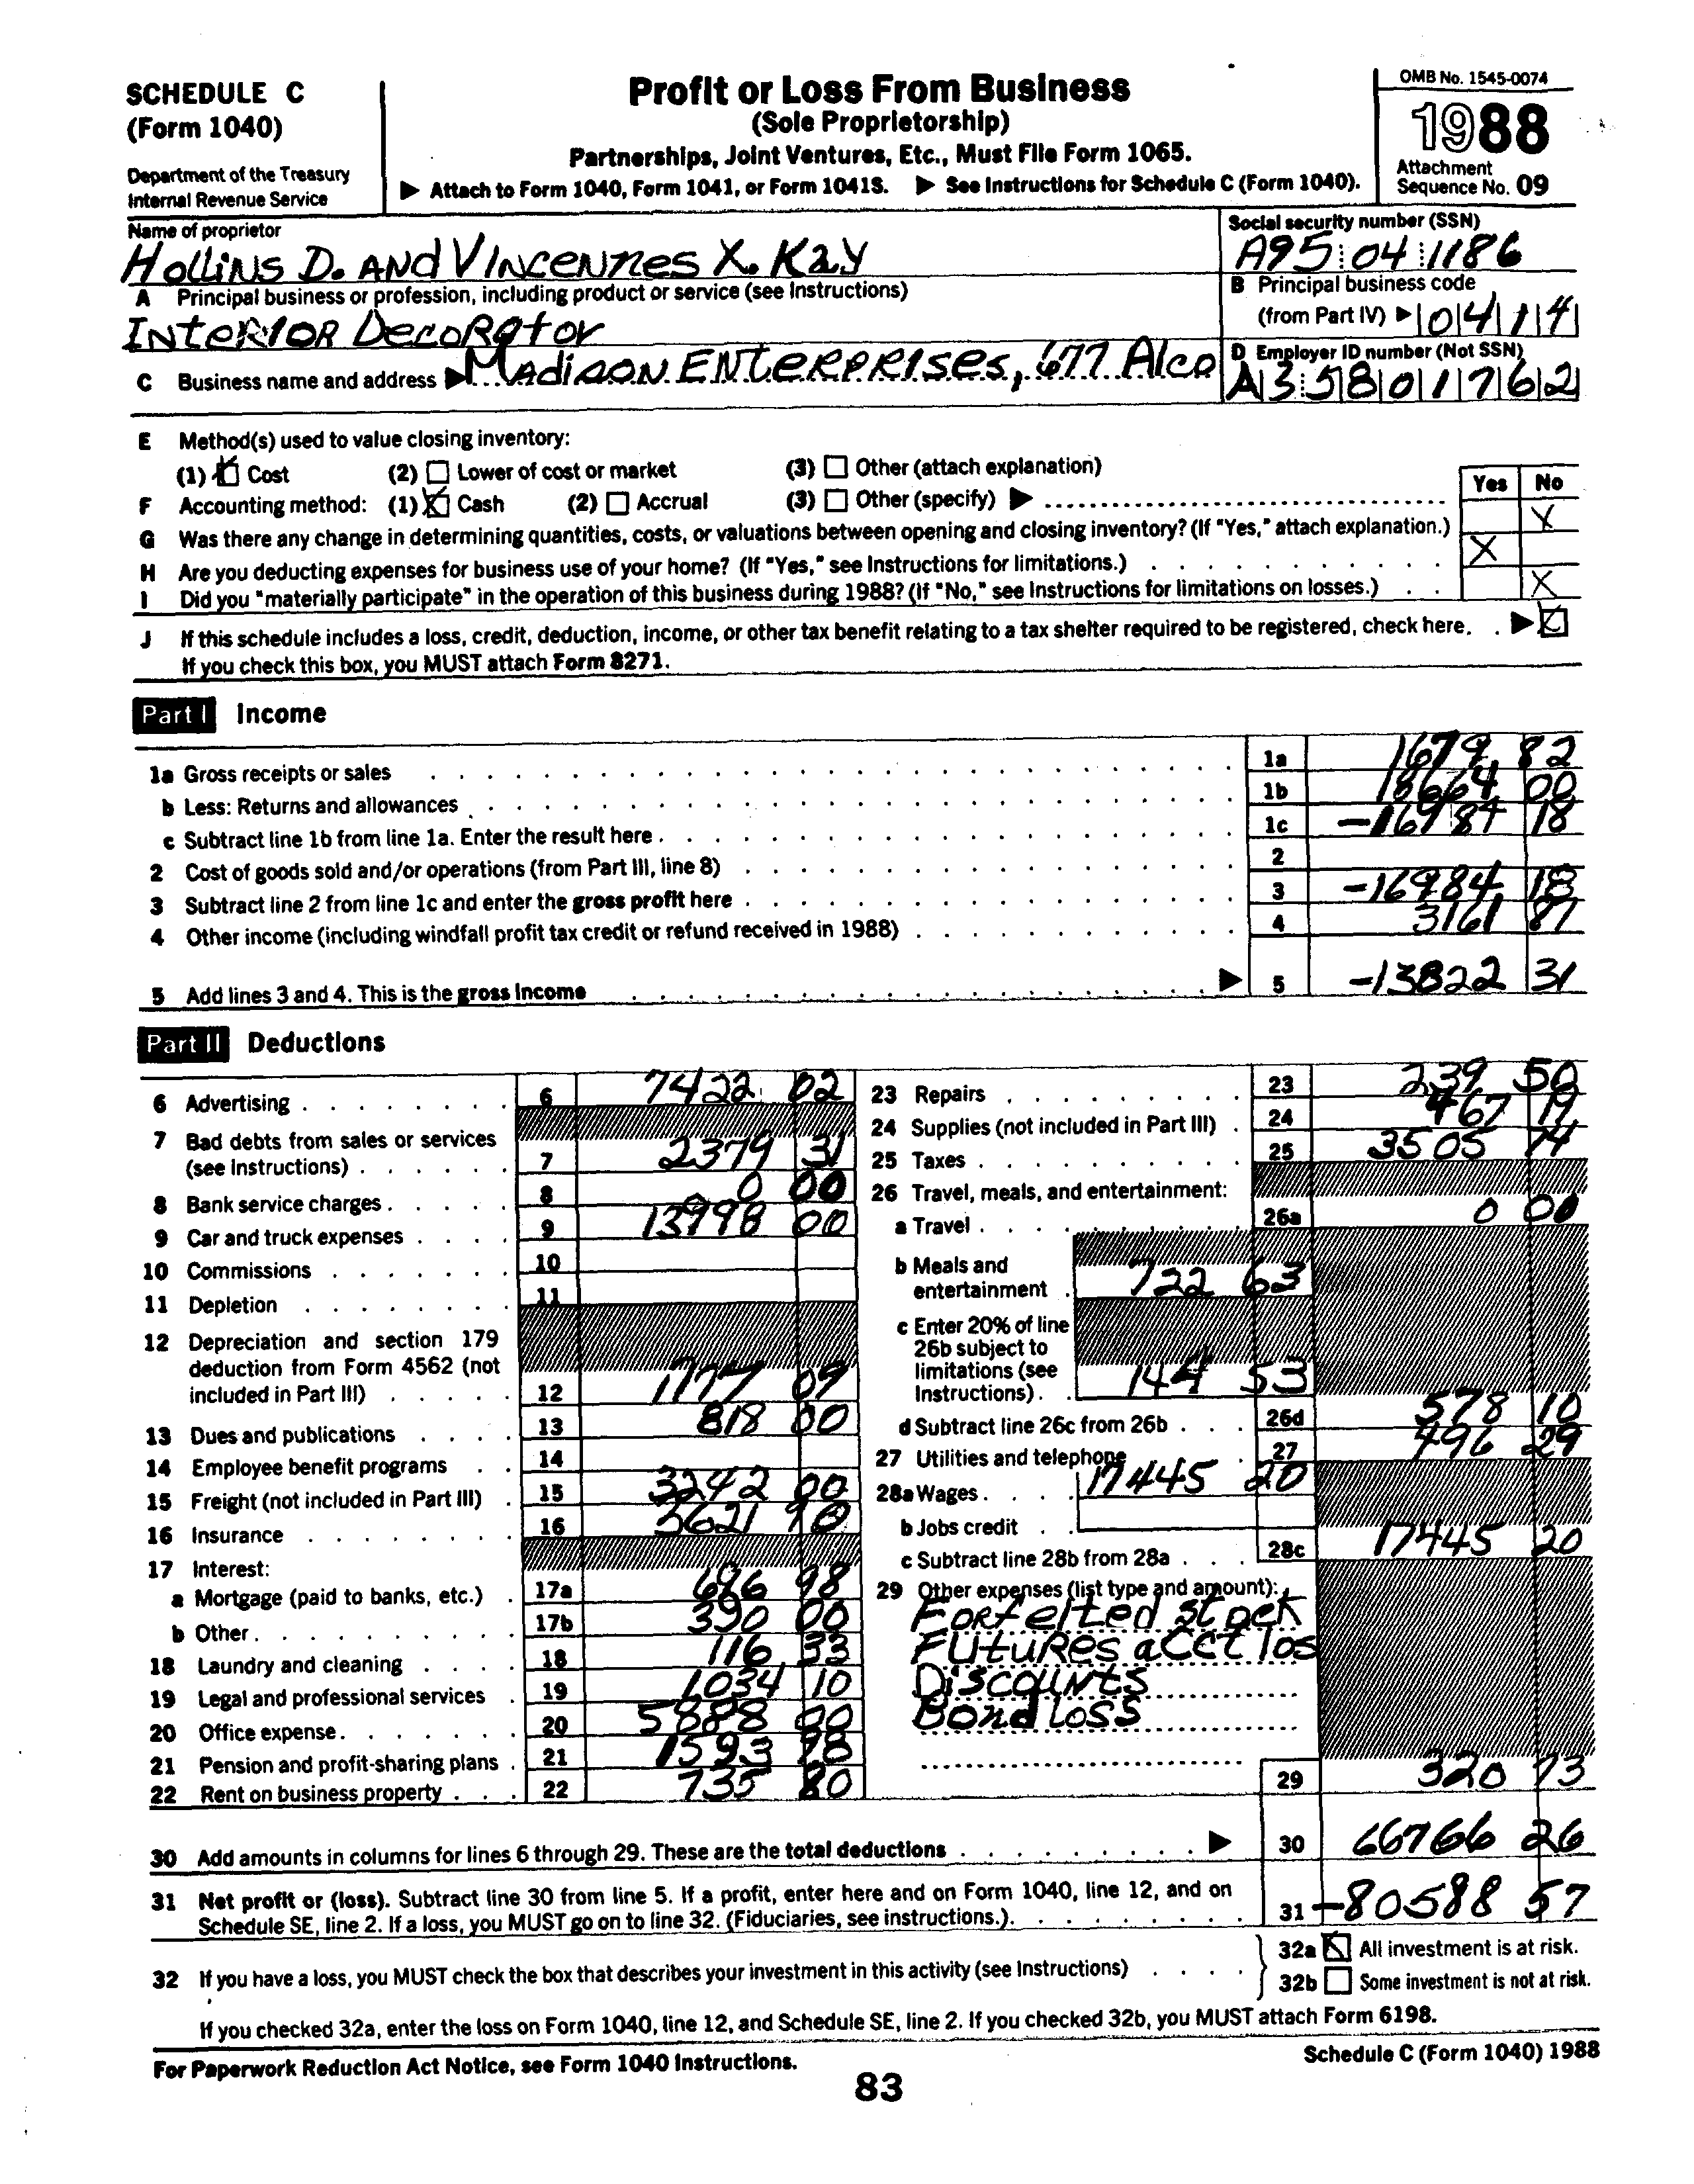 SCHEDULE C
(Form 1040)
Department of the Treasury
Internal Revenue Service
Profit or Loss From Business
(Sole Proprietorship)
Partnerships, Joint Ventures, Etc., Must File Form 1065.
▶ Attach to Form 1040, Form 1041, or Form 1041S. ▶ See Instructions for Schedule C (Form 1040).
OMB No. 1545-0074
1988
Attachment
Sequence No. 09
Name of proprietor
Hollins D. and Vincennes X. Kay
Social security number (SSN)
A95 04 1186
A Principal business or profession, including product or service (see Instructions)
Interior Decorator
B Principal business code
(from Part IV) ▶ 0 4 1 4
C Business name and address ▶ Madison Enterprises, 677 Alco
D Employer ID number (Not SSN)
A 3 5 8 0 1 7 6 2
E Method(s) used to value closing inventory:
(1) Cost (2) Lower of cost or market (3) Other (attach explanation)
F Accounting method: (1) Cash (2) Accrual (3) Other (specify) ▶
Yes No
G Was there any change in determining quantities, costs, or valuations between opening and closing inventory? (If "Yes," attach explanation.) X
H Are you deducting expenses for business use of your home? (If "Yes," see Instructions for limitations.) X
I Did you "materially participate" in the operation of this business during 1988? (If "No," see Instructions for limitations on losses.) X
J If this schedule includes a loss, credit, deduction, income, or other tax benefit relating to a tax shelter required to be registered, check here. ▶ X
If you check this box, you MUST attach Form 8271.
Part I Income
1a Gross receipts or sales 1a 1679 82
b Less: Returns and allowances 1b 18664 00
c Subtract line 1b from line 1a. Enter the result here 1c -16984 18
2 Cost of goods sold and/or operations (from Part III, line 8) 2
3 Subtract line 2 from line 1c and enter the gross profit here 3 -16984 18
4 Other income (including windfall profit tax credit or refund received in 1988) 4 3161 87
5 Add lines 3 and 4. This is the gross income ▶ 5 -13822 31
Part II Deductions
6 Advertising 6 7422 02
7 Bad debts from sales or services
(see Instructions) 7 2379 31
8 Bank service charges 8 0 00
9 Car and truck expenses 9 13998 00
10 Commissions 10
11 Depletion 11
12 Depreciation and section 179
deduction from Form 4562 (not
included in Part III) 12 1777 09
13 Dues and publications 13 818 00
14 Employee benefit programs 14
15 Freight (not included in Part III) 15 3242 00
16 Insurance 16 3621 90
17 Interest:
a Mortgage (paid to banks, etc.) 17a 696 98
b Other 17b 390 00
18 Laundry and cleaning 18 116 33
19 Legal and professional services 19 1034 10
20 Office expense 20 5888 00
21 Pension and profit-sharing plans 21 1593
22 Rent on business property 22 735 80
23 Repairs 23 239 50
24 Supplies (not included in Part III) 24 467 19
25 Taxes 25 3505 74
26 Travel, meals, and entertainment:
a Travel 26a 0 00
b Meals and
entertainment 722 63
c Enter 20% of line
26b subject to
limitations (see
Instructions) 144 53
d Subtract line 26c from 26b 26d 578 10
27 Utilities and telephone 27 496 29
28a Wages 17445 20
b Jobs credit
c Subtract line 28b from 28a 28c 17445 20
29 Other expenses (list type and amount):
Forfeited stock
Futures acct los
Discounts
Bond loss
29 320 73
30 Add amounts in columns for lines 6 through 29. These are the total deductions ▶ 30 66766 26
31 Net profit or (loss). Subtract line 30 from line 5. If a profit, enter here and on Form 1040, line 12, and on
Schedule SE, line 2. If a loss, you MUST go on to line 32. (Fiduciaries, see instructions.) 31 -80588 57
32 If you have a loss, you MUST check the box that describes your investment in this activity (see Instructions)
32a X All investment is at risk.
32b Some investment is not at risk.
If you checked 32a, enter the loss on Form 1040, line 12, and Schedule SE, line 2. If you checked 32b, you MUST attach Form 6198.
For Paperwork Reduction Act Notice, see Form 1040 Instructions.
Schedule C (Form 1040) 1988
83